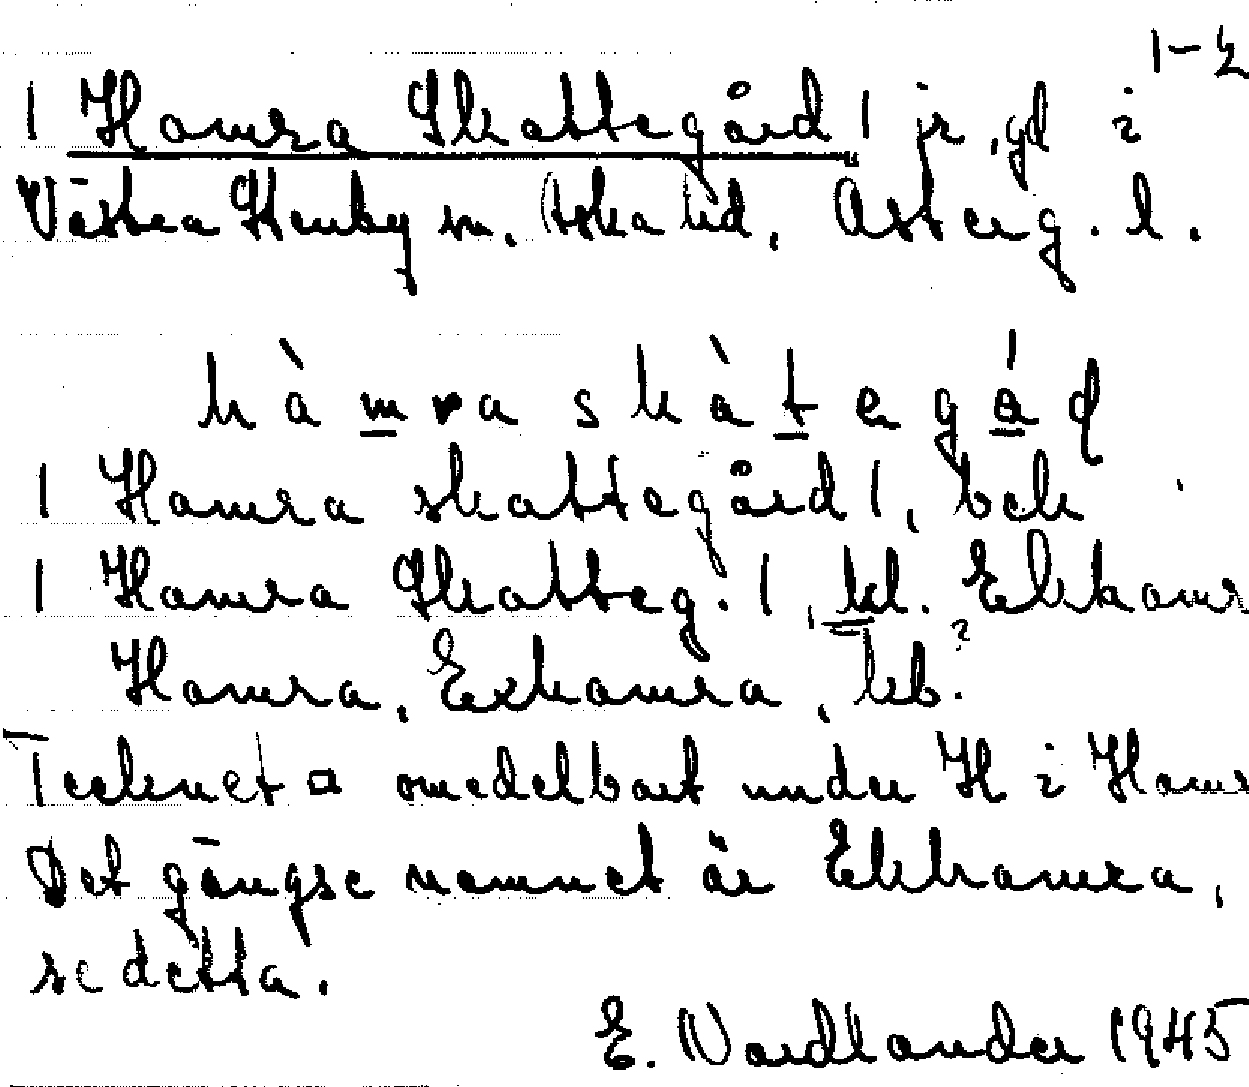 1-2
| Hamra Skattegård | jr, gd i
Västra Stenby sn, Aska hd, Österg. l.
hàmra skàtegád
| Hamra skattegård |, bek
| Hamra Skatteg. |, kl. Ekhamr
Hamra, Exhamra, hb.?
Tecknet ¤ omedelbart under H i Hamr
Det gängse namnet är Ekhamra,
se detta.
E. Nordlander 1945